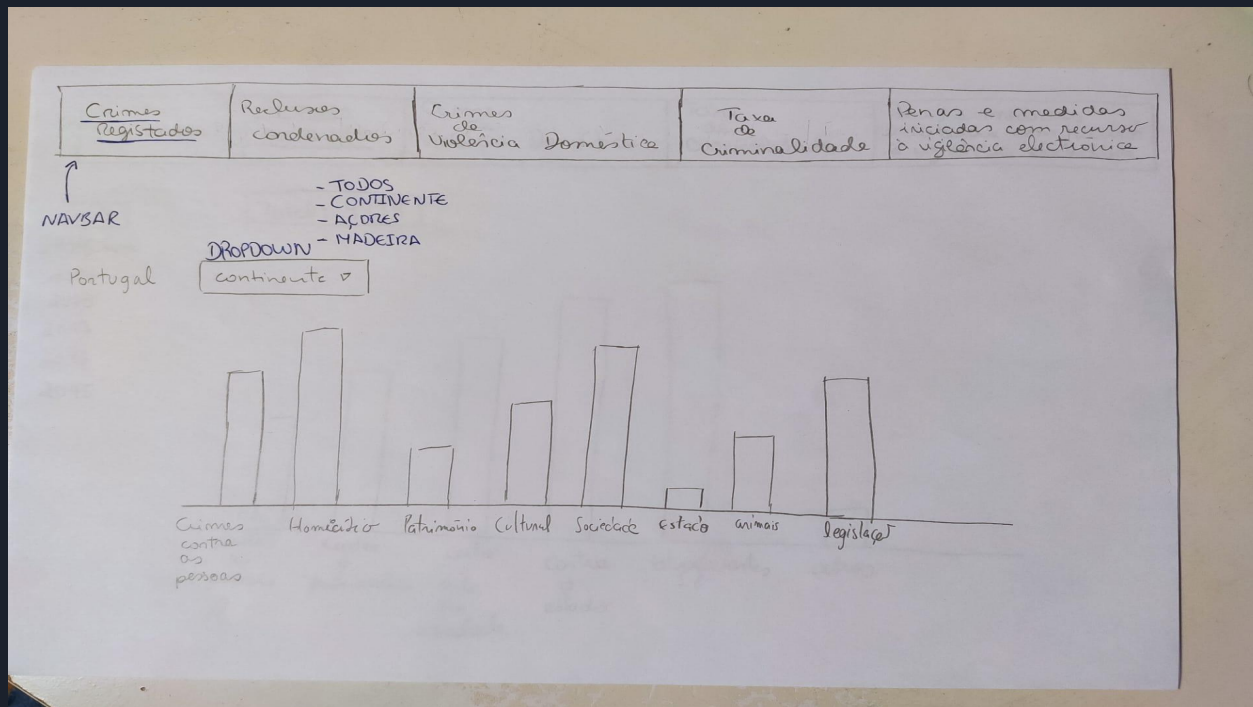 Crimes
Registados
Reclusos
condenados
Crimes
de
Violência Doméstica
Taxa
de
Criminalidade
Penas e medidas
iniciadas com recurso
à vigilância electrónica
NAVBAR
- TODOS
- CONTINENTE
- AÇORES
- MADEIRA
DROPDOWN
Portugal
continente
Crimes
contra
as
pessoas
Homicídio
Património
Cultural
Sociedade
Estado
animais